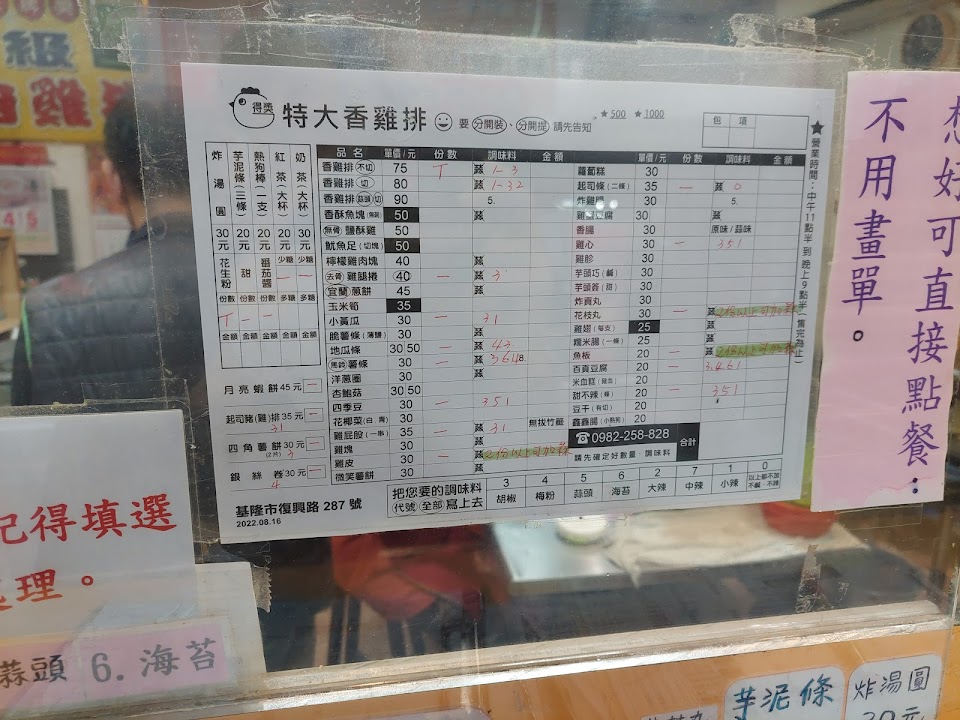 級
雞
得獎
特大香雞排
要 分開裝、分開提 請先告知
★500 ★1000
包 項
★營業時間:中午11點半到晚上9點半(售完為止)
炸湯圓 30元 花生粉
芋泥條(三條) 20元 甜
熱狗棒(一支) 20元 番茄醬
紅茶(大杯) 20元 少糖 多糖
奶茶(大杯) 30元 少糖 多糖
份數 份數 份數
金額 金額 金額 金額 金額
月亮蝦餅45元 一
起司豬(雞)排35元 一
31
四角薯餅30元 一
(2片) 3
銀絲卷30元 一
4
品名 單價/元 份數 調味料 金額
香雞排 不切 75 T 蒜 1-3
香雞排 切 80 蒜 1-32
香雞排 蒜頭 切 90 5.
香酥魚塊 50
無骨 鹽酥雞 50
魷魚足(切塊) 50
檸檬雞肉塊 40 蒜
去骨 雞腿捲 40 一 蒜 3
宜蘭 蔥餅 45 蒜
玉米筍 35
小黃瓜 30 一 31
脆薯條(薄鹽) 30 蒜
地瓜條 30 50 一 蒜 43
馬鈴 薯條 30 蒜
洋蔥圈 30 蒜
杏鮑菇 30 50
四季豆 30 一 351
花椰菜(白 青) 30 無拔竹籤
雞屁股(一串) 35 一 蒜 31
雞塊 30 蒜
雞皮 30 一 蒜 2份以上可加蒜
微笑薯餅 30 蒜
單價/元 份數 調味料 金額
蘿蔔糕 30
起司條(二條) 35 一 蒜 0
炸雞 30 5.
豆腐 30 蒜
香腸 30 原味/蒜味
雞心 30 一 351
雞胗 30
芋頭巧(鹹) 30
芋頭簽(甜) 30
炸貢丸 30
花枝丸 30 一 蒜 2份以上可加蒜
雞翅(每支) 25 蒜
糯米腸(一條) 25 蒜
魚板 20 一 蒜 2份以上可加蒜
百頁豆腐 20 一 3.461
米血糕 20
甜不辣(條) 20 一 351
豆干(有切) 20
鑫鑫腸(小熱狗) 20
☎0982-258-828
請先確定好數量、調味料
合計
基隆市復興路 287 號
2022.08.16
把您要的調味料
代號 全部 寫上去
3 4 5 6 2 7 1 0
胡椒 梅粉 蒜頭 海苔 大辣 中辣 小辣 以上都不加 不鹹、不辣
想好可直接點餐:
不用畫單。
記得填選
理。
蒜頭 6. 海苔
芋泥條
炸湯圓
30元